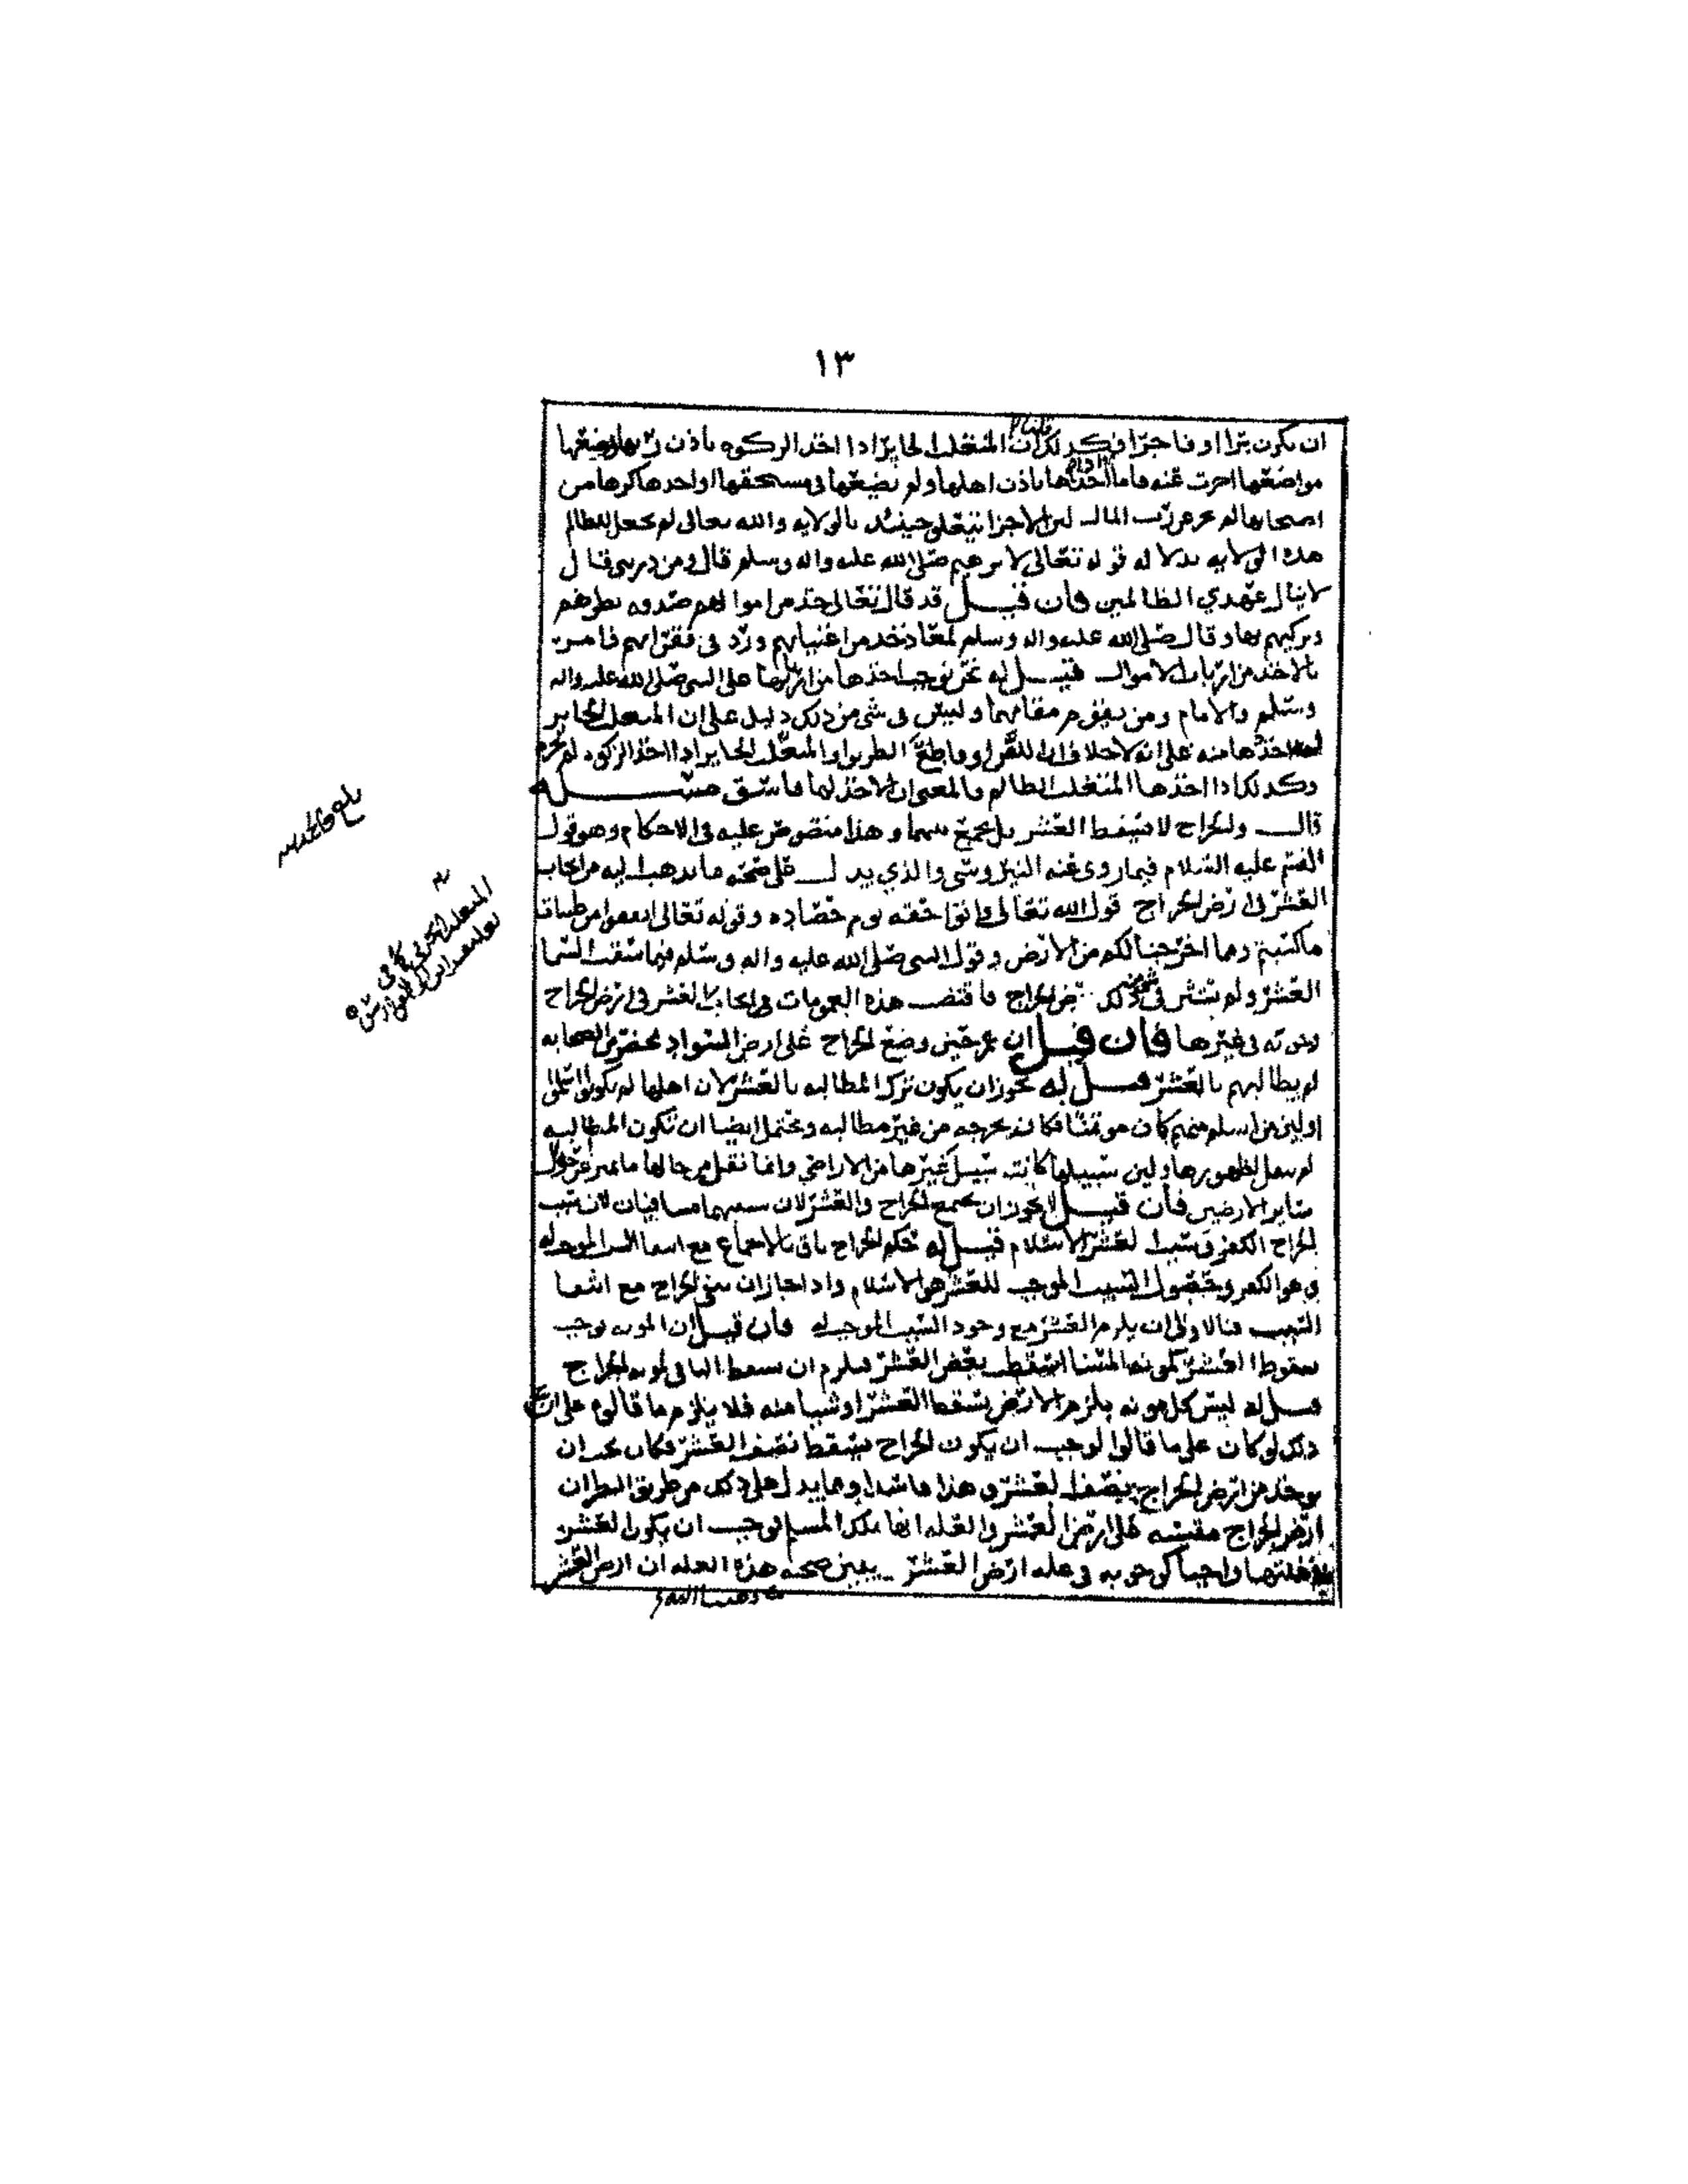 ١٣
ان يكون برا او فاجرا فكذلك قلنا ان المتغلب الجاير اذا اخذ الزكوه باذن ربها ووضعها
مواضعها اجزت عنه فاما اذا اخذها باذن اهلها ولم يضعها في مستحقها او اخذها كرها من
اصحابها لم يجز عن رب المال لان الاجزا يتعلق حينئذ بالولايه والله تعالى لم يجعل للظالم
هذه الولايه بدلاله قوله تعالى لابرهيم صلى الله عليه واله وسلم قال ومن ذريتي قال
لا ينال عهدي الظالمين فان قيل قد قال تعالى خذ من اموالهم صدقه تطهرهم
وتزكيهم بها وقال صلى الله عليه واله وسلم لمعاذ خذ من اغنيائهم ورد في فقرائهم فامر
بالاخذ من ارباب الاموال قيل له نحن نوجب اخذها من اربابها على النبي صلى الله عليه واله
وسلم والامام ومن يقوم مقامهما وليس في شي من ذلك دليل على ان المتغلب الجاير
اخذها منه على انه لا خلاف ان اللص وقاطع الطريق والمتغلب الجاير اذا اخذ الزكوه لم يجز
وكذلك اذا اخذها المتغلب الظالم والمعنى ان الاخذ لها فاسق مسله
قال والخراج لا يسقط العشر بل يجمع بينهما وهذا منصوص عليه في الاحكام وهو قول
القسم عليه السلام فيما روى عنه النيروسي والذي يدل على صحه ما نذهب اليه من ايجاب
العشر في ارض الخراج قول الله تعالى واتوا حقه يوم حصاده وقوله تعالى انفقوا من طيبات
ما كسبتم ومما اخرجنا لكم من الارض وقول النبي صلى الله عليه واله وسلم فيما سقت السما
العشر ولم يستثن في شي من ذلك ارض الخراج فاقتضت هذه العمومات في ايجاب العشر في ارض الخراج
وثبوته في غيرها فان قيل ان عمر حين وضع الخراج على ارض السواد بمحضر من الصحابه
لم يطالبهم بالعشر قيل له يجوز ان يكون ترك المطالبه بالعشر لان اهلها لم يكونوا اسلموا
او لان من اسلم منهم كان موتمنا فكان يخرجه من غير مطالبه ويحتمل ايضا ان تكون المطالبه
لم تنقل لظهورها ولان سبيلها كانت سبيل غيرها من الاراضي وانما نقل من حالها ما تميز عن حال
ساير الارضين فان قيل لا يجوز ان يجمع الخراج والعشر لان سببهما متنافيان لان سبب
الخراج الكفر وسبب العشر الاسلام قيل له حكم الخراج باق بالاجماع مع انتفا السبب الموجب له
وهو الكفر وحصول السبب الموجب للعشر هو الاسلام واذا جاز ان يبقى الخراج مع انتفا
السبب فالاولى ان يلزم العشر مع وجود السبب الموجب له فان قيل ان المونه توجب
سقوط العشر كمونه السنا اسقطت بعض العشر فيلزم ان يسقط الباقي لمونه الخراج
قيل له ليس كل مونه يلزم الارض يسقط العشر او شيا منه فلا يلزم ما قالوه على ان
ذلك لو كان على ما قالوا لوجب ان يكون الخراج يسقط نصف العشر فكان يجب ان
يوخذ من ارض الخراج نصف العشر وهذا فاسد ومما يدل على ذلك من طريق النظر ان
ارض الخراج مقيسه على ارض العشر والعله انها ملك المسلم فوجب ان يكون العشر
في غلتها واجبا كوجوبه في غله ارض العشر يبين صحه هذه العله ان ارض العشر